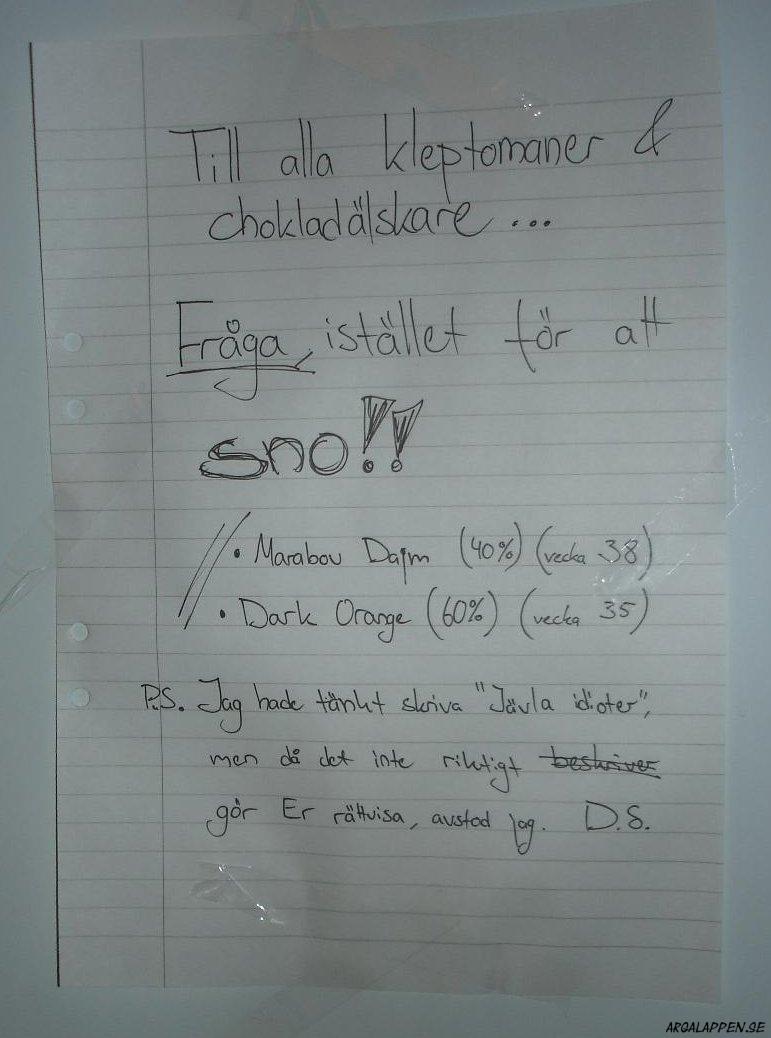 Till alla kleptomaner &
chokladälskare...
Fråga, istället för att
sno!!
• Marabou Dajm (40%) (vecka 38)
• Dark Orange (60%) (vecka 35)
P.S. Jag hade tänkt skriva "Jävla idioter",
men då det inte riktigt beskriver
gör Er rättvisa, avstod jag. D.S.
ARGALAPPEN.SE